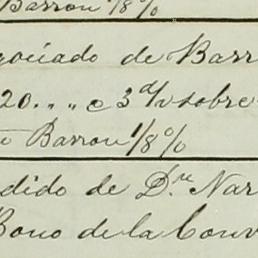 Barron 1/8 %
gociado de Barr
20. „ „ c 3 d/v sobre
Barron 1/8 %
dido de D.n Nar
Bono de la Conv